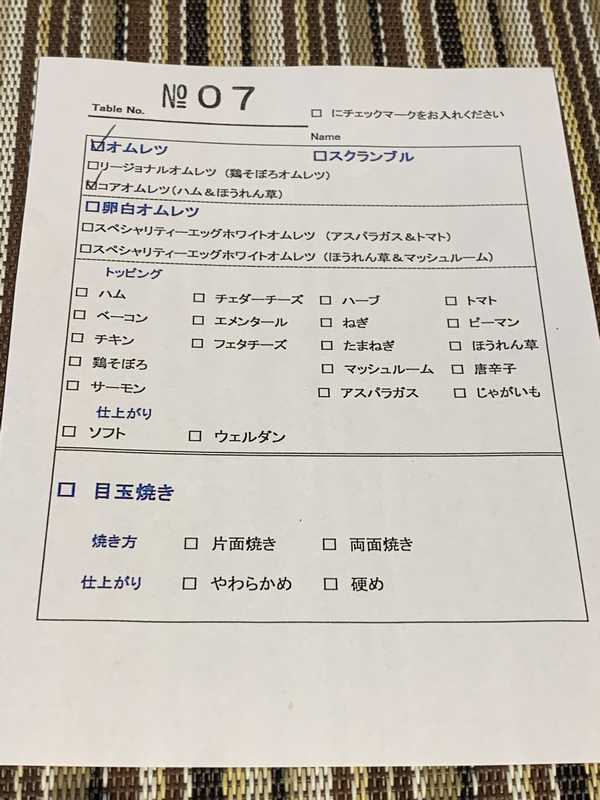 Table No. № 07
□ にチェックマークをお入れください
Name
☑オムレツ □スクランブル
□リージョナルオムレツ (鶏そぼろオムレツ)
☑コアオムレツ(ハム&ほうれん草)
□卵白オムレツ
□スペシャリティーエッグホワイトオムレツ (アスパラガス&トマト)
□スペシャリティーエッグホワイトオムレツ (ほうれん草&マッシュルーム)
トッピング
□ ハム □ チェダーチーズ □ ハーブ □ トマト
□ ベーコン □ エメンタール □ ねぎ □ ピーマン
□ チキン □ フェタチーズ □ たまねぎ □ ほうれん草
□ 鶏そぼろ □ マッシュルーム □ 唐辛子
□ サーモン □ アスパラガス □ じゃがいも
仕上がり
□ ソフト □ ウェルダン
□ 目玉焼き
焼き方 □ 片面焼き □ 両面焼き
仕上がり □ やわらかめ □ 硬め